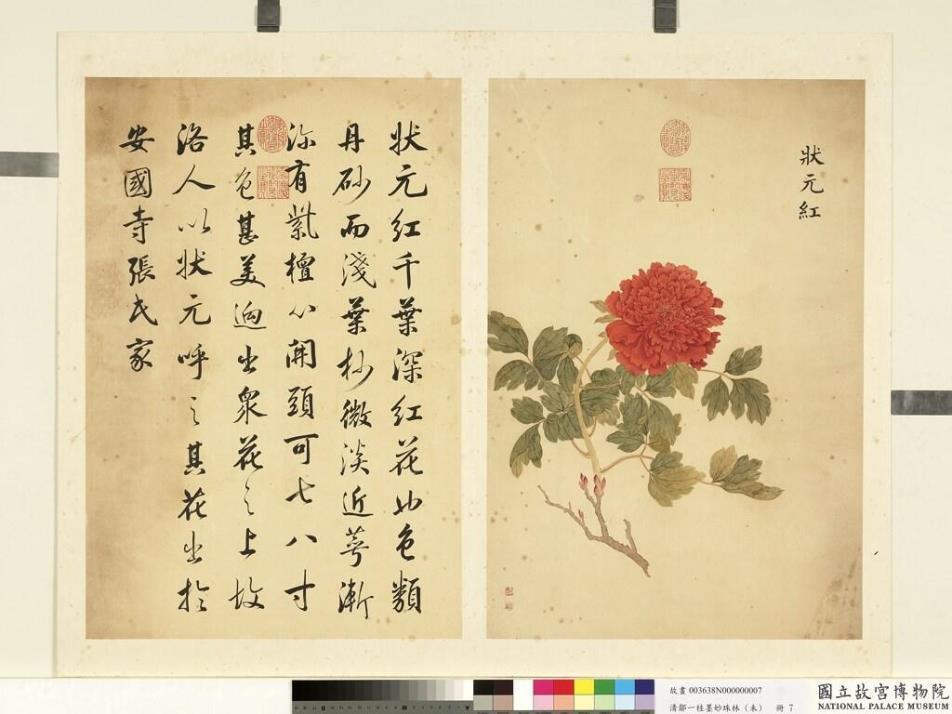 狀元紅
狀元紅千葉深紅花也色類
丹砂而淺葉杪微淡近萼漸
深有紫檀心開頭可七八寸
其色甚美逈出衆花之上故
洛人以狀元呼之其花出於
安國寺張氏家
故畫 003638N000000007
清鄒一桂墨妙珠林（未） 冊 7
國立故宮博物院
NATIONAL PALACE MUSEUM